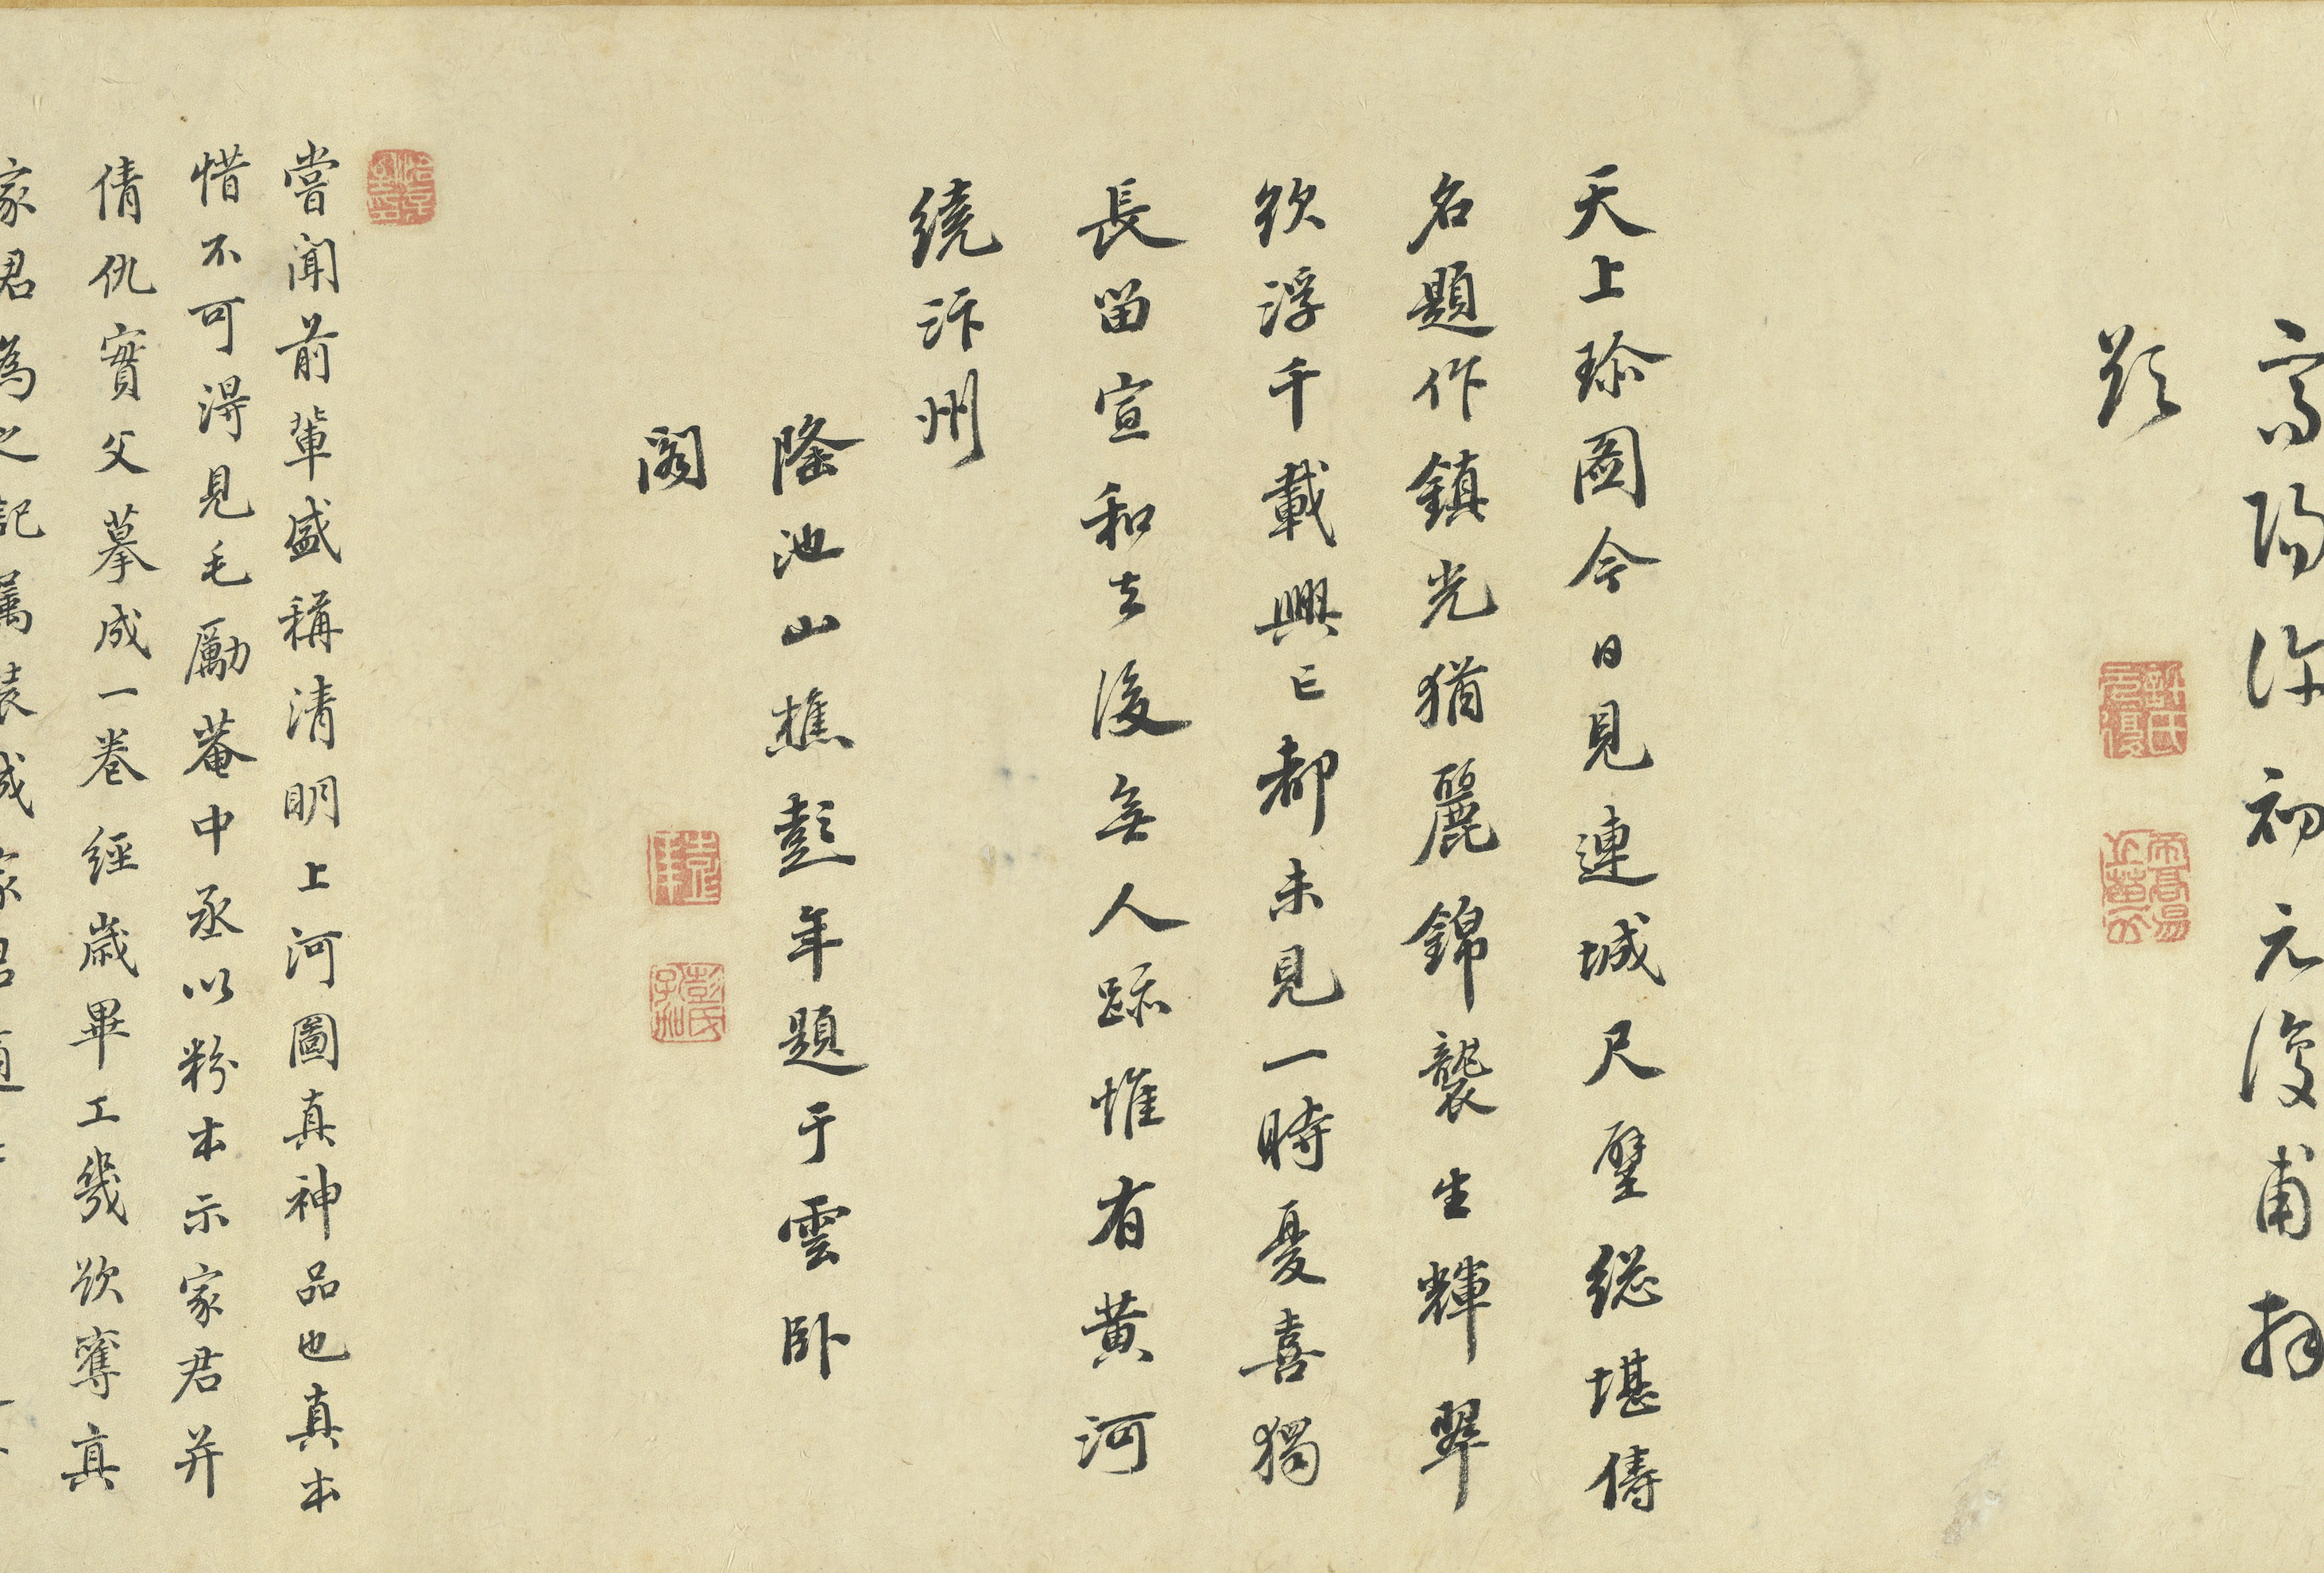 高陽許初元復甫拜
題
天上珎圖今日見連城尺璧総堪儔
名題作鎮光猶麗錦襲生輝翠
欲浮千載興亡都未見一時憂喜獨
長留宣和去後無人跡惟有黃河
繞汴州
隆池山樵彭年題于雲臥
閣
嘗聞前輩盛稱清明上河圖真神品也真本
惜不可淂見毛勵菴中丞以粉本示家君并
倩仇實父摹成一卷經歲畢工幾欲奪真
家君為之記屬裝成家君